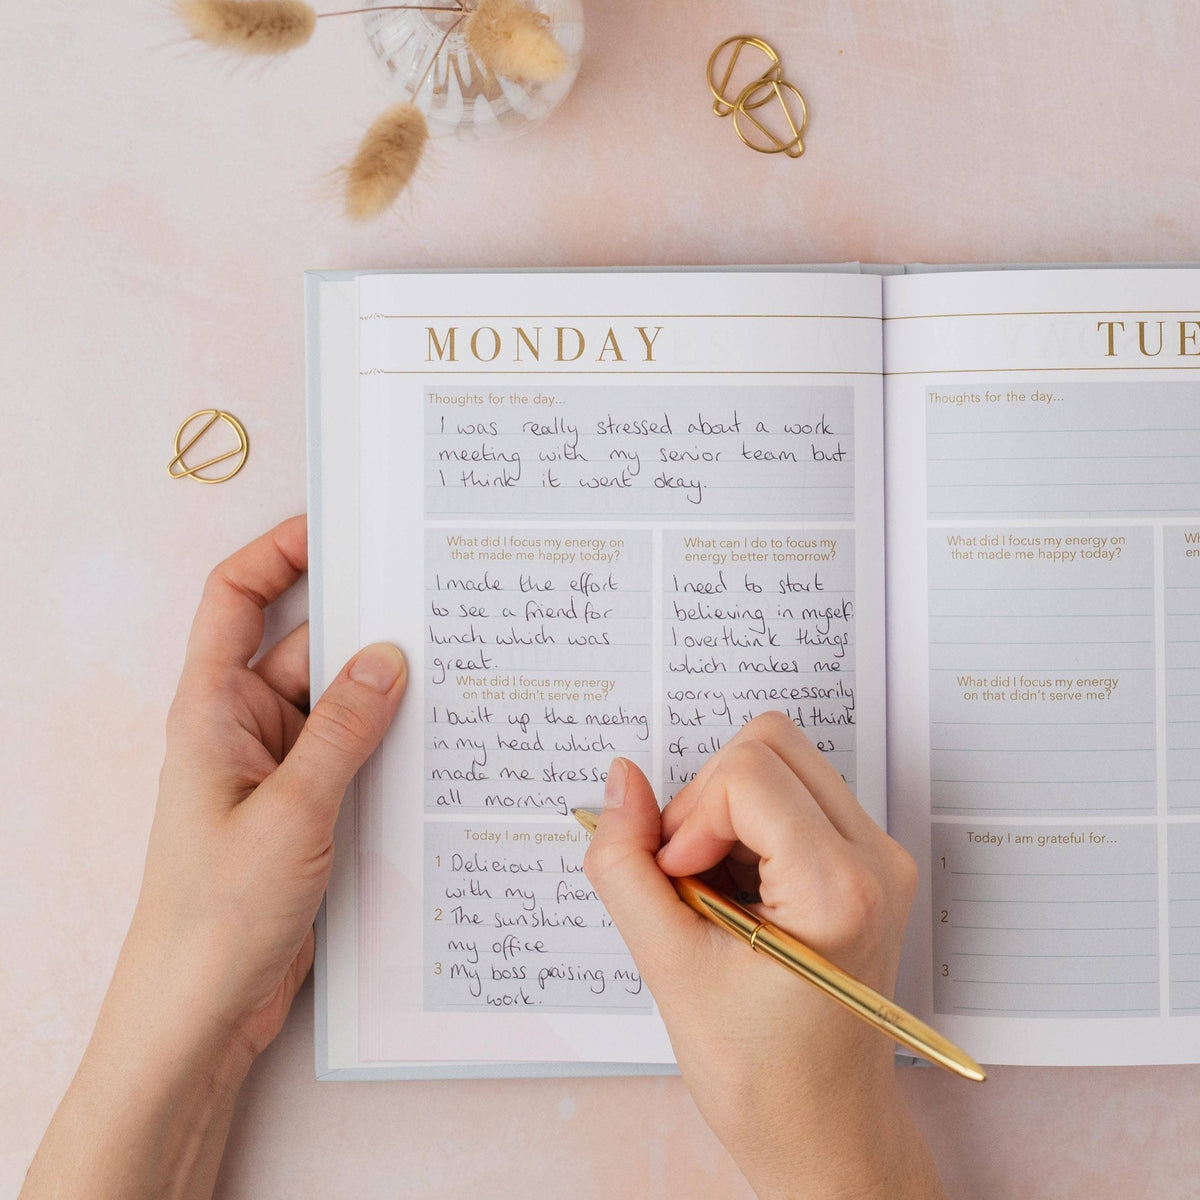 MONDAY
Thoughts for the day...
I was really stressed about a work
meeting with my senior team but
I think it went okay.
What did I focus my energy on
that made me happy today?
I made the effort
to see a friend for
lunch which was
great.
What did I focus my energy
on that didn't serve me?
I built up the meeting
in my head which
made me stresse
all morning
What can I do to focus my
energy better tomorrow?
I need to start
believing in myself.
I overthink things
which makes me
worry unnecessarily
but I think
of all
Today I am grateful
1 Delicious
with my
2 The sunshine
my office
3 My boss praising my
work.
TUE
Thoughts for the day...
What did I focus my energy on
that made me happy today?
What did I focus my energy
on that didn't serve me?
Today I am grateful for...
1
2
3